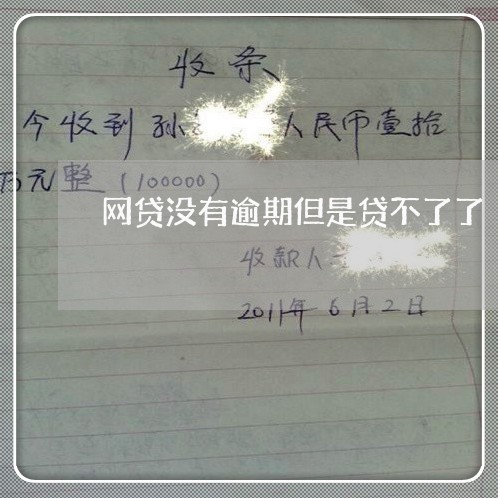 收条
今收到孙 人民币壹拾
万元整（100000）
网贷没有逾期但是贷不了了
收款人
2011年6月2日